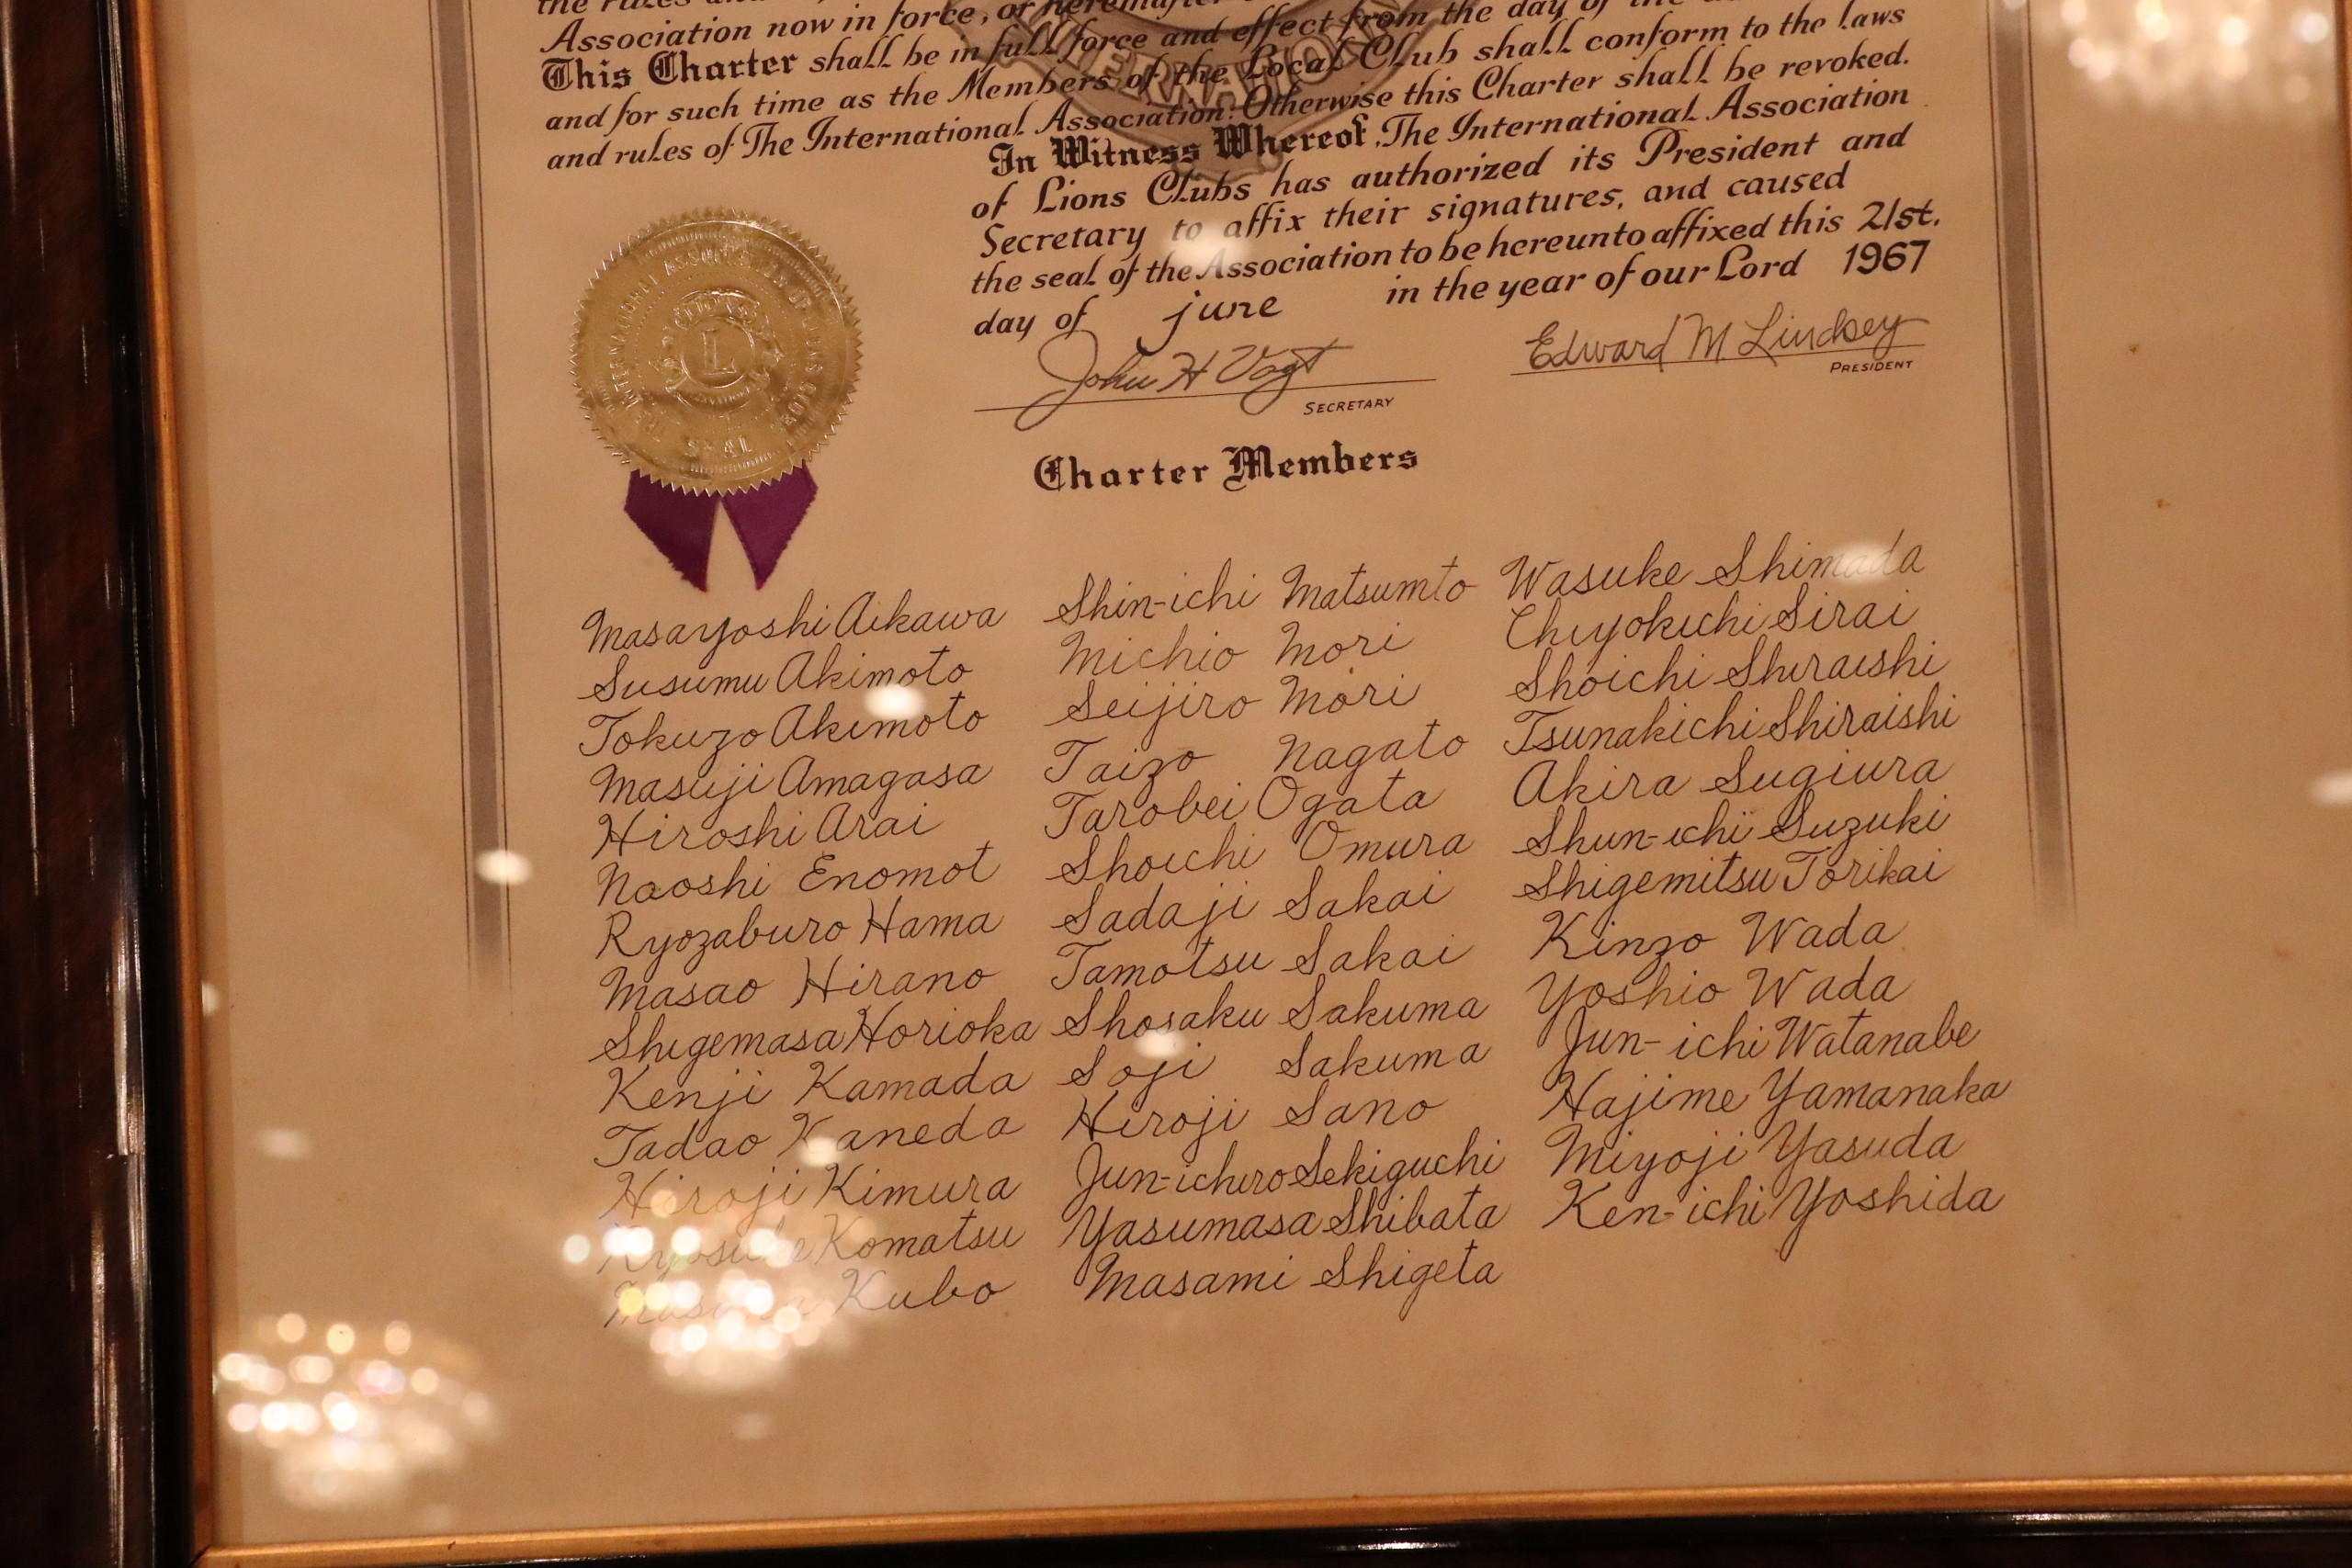 the rules and
Association now in force, or hereafter
This Charter shall be in full force and effect from the day of
and for such time as the Members of the Local Club shall conform to the laws
and rules of The International Association. Otherwise this Charter shall be revoked.
In Witness Whereof, The International Association
of Lions Clubs has authorized its President and
Secretary to affix their signatures, and caused
the seal of the Association to be hereunto affixed this 21st.
day of june in the year of our Lord 1967
John H Vogt
SECRETARY
Edward M. Lindsey
PRESIDENT
L
SEAL
Charter Members
Masayoshi Aikawa
Susumu Akimoto
Tokuzo Akimoto
Masuji Amagasa
Hiroshi Arai
Naoshi Enomot
Ryozaburo Hama
Masao Hirano
Shigemasa Horioka
Kenji Kamada
Tadao Kaneda
Hiroji Kimura
Ryosuke Komatsu
Kubo
Shin-ichi Matsumto
Michio Mori
Seijiro Mori
Taizo Nagato
Tarobei Ogata
Shoichi Omura
Sadaji Sakai
Tamotsu Sakai
Shosaku Sakuma
Soji Sakuma
Hiroji Sano
Jun-ichiro Sekiguchi
Yasumasa Shibata
Masami Shigeta
Wasuke Shimada
Chiyokichi Sirai
Shoichi Shiraishi
Tsunakichi Shiraishi
Akira Sugiura
Shun-ichi Suzuki
Shigemitsu Torikai
Kinzo Wada
Yoshio Wada
Jun-ichi Watanabe
Hajime Yamanaka
Miyoji Yasuda
Ken-ichi Yoshida